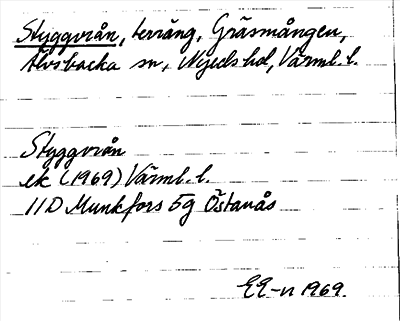 Styggvrån, terräng, Gräsmången,
Älvsbacka sn, Nyeds hd, Värml. l.
Styggvrån
ek (1969) Värml. l.
11D Munkfors 5g Östanås
EE-n 1969.